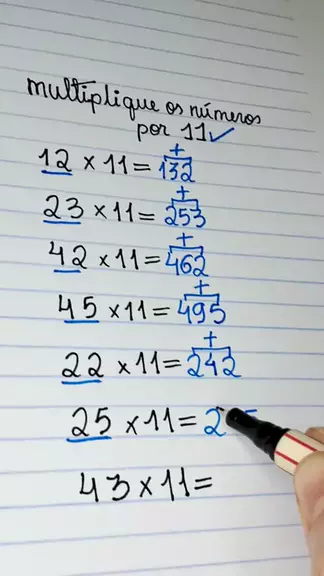 multiplique os números
por 11 ✓
+
12 × 11 = 132
+
23 × 11 = 253
+
42 × 11 = 462
+
45 × 11 = 495
+
22 × 11 = 242
25 × 11 = 2
43 × 11 =